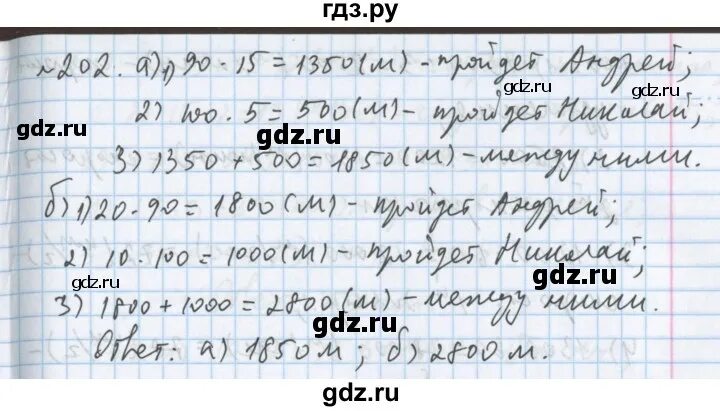 гдз.ру
№202. а) 1) 90 · 15 = 1350 (м) - пройдет Андрей;
gdz.ru
gdz.ru
2) 100 · 5 = 500 (м) - пройдет Николай;
gdz.ru
gdz.ru
3) 1350 + 500 = 1850 (м) - между ними.
б) 1) 20 · 90 = 1800 (м) - пройдет Андрей;
gdz.ru
gdz.ru
2) 10 · 100 = 1000 (м) - пройдет Николай;
gdz.ru
gdz.ru
3) 1800 + 1000 = 2800 (м) - между ними.
gdz.ru
Ответ: а) 1850 м; б) 2800 м.
gdz.ru
gdz.ru